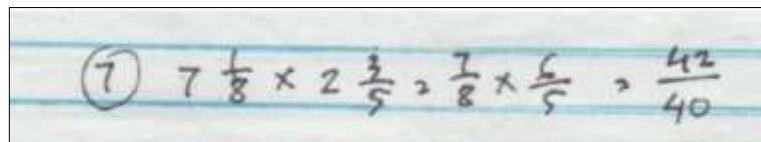 (7) 7 1/8 × 2 3/5 = 7/8 × 6/5 = 42/40